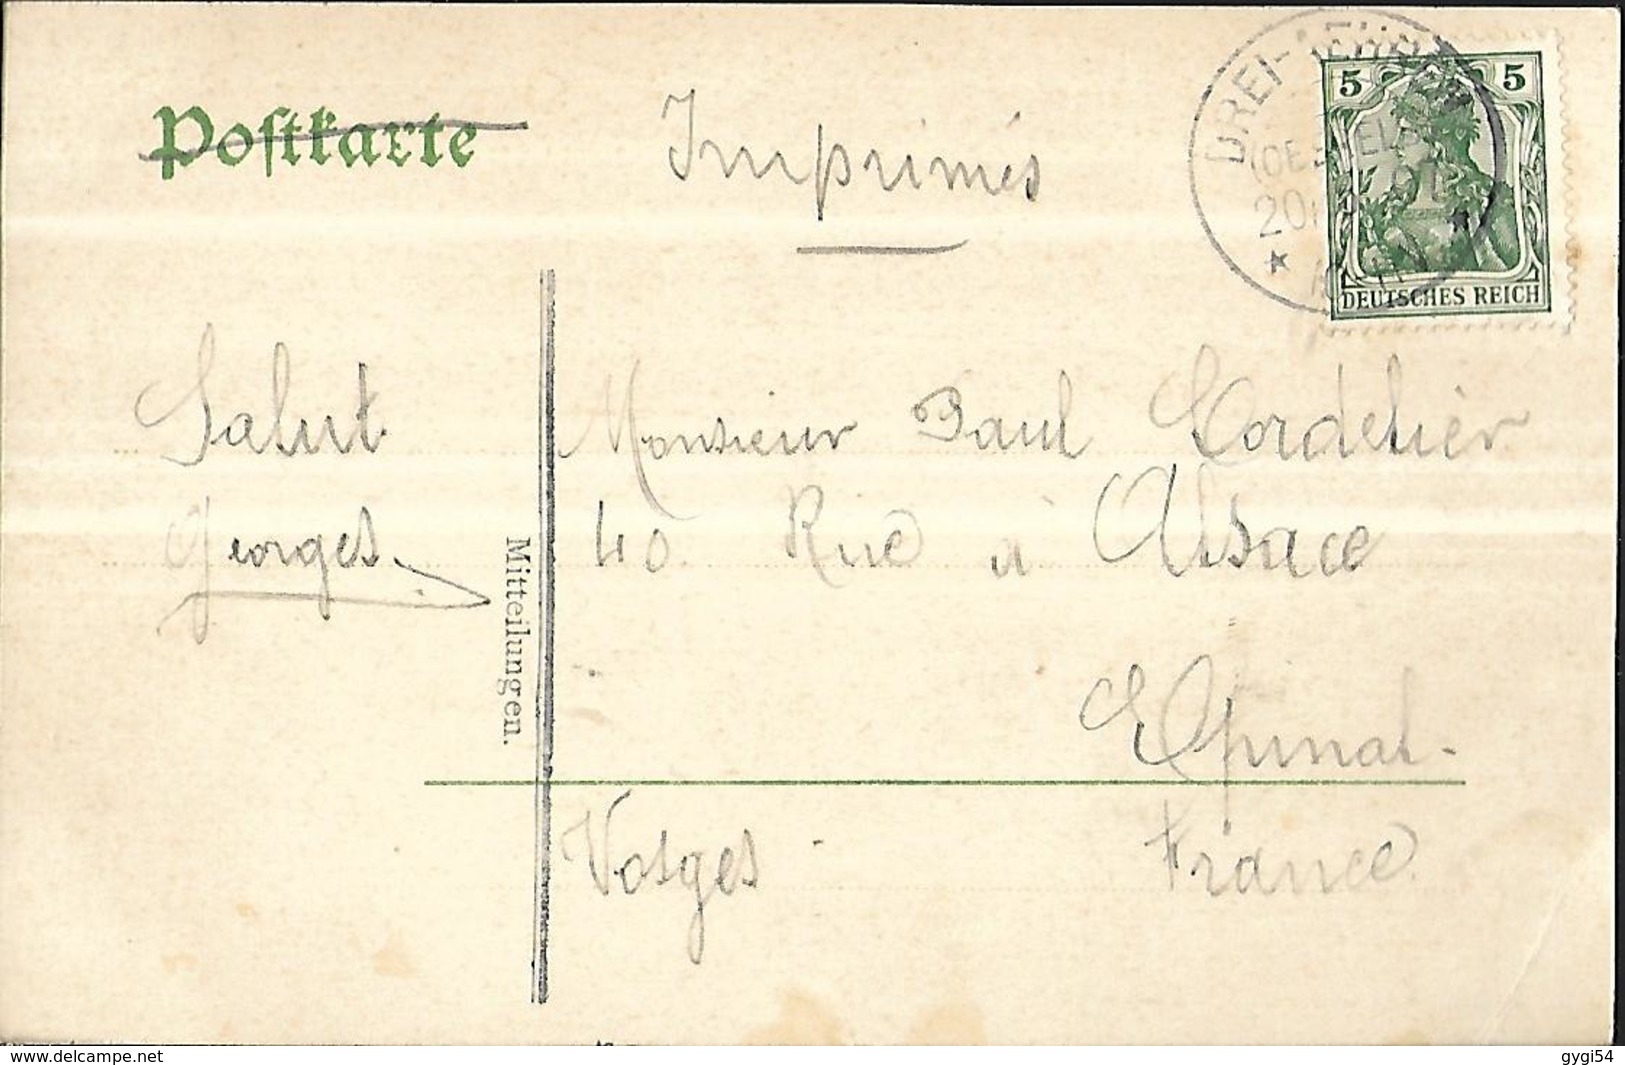 Postkarte
Imprimés
5 5
DEUTSCHES REICH
DREI-
20
Salut
Georges
Mitteilungen.
Monsieur Paul Cordelier
40 Rue d'Alsace
Epinal.
Vosges
France
www.delcampe.net
gygi54